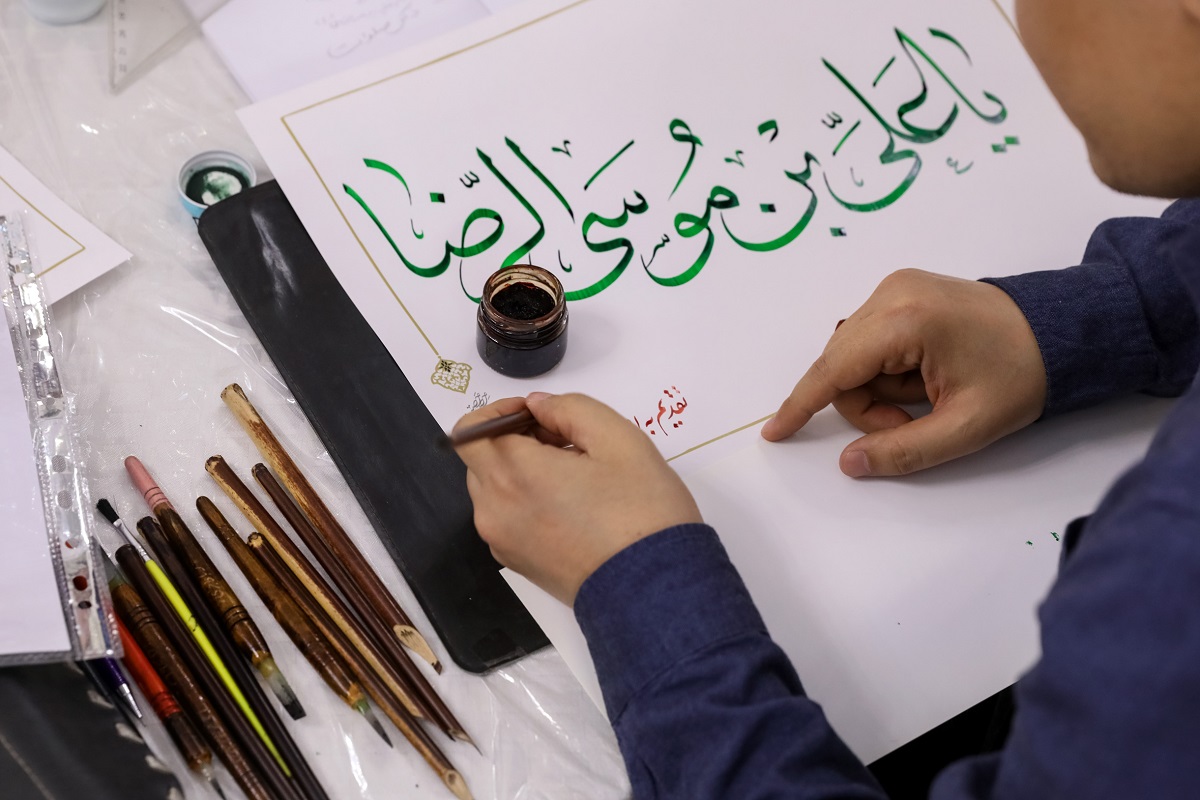 یا علی بن موسی الرضا
تقدیم به